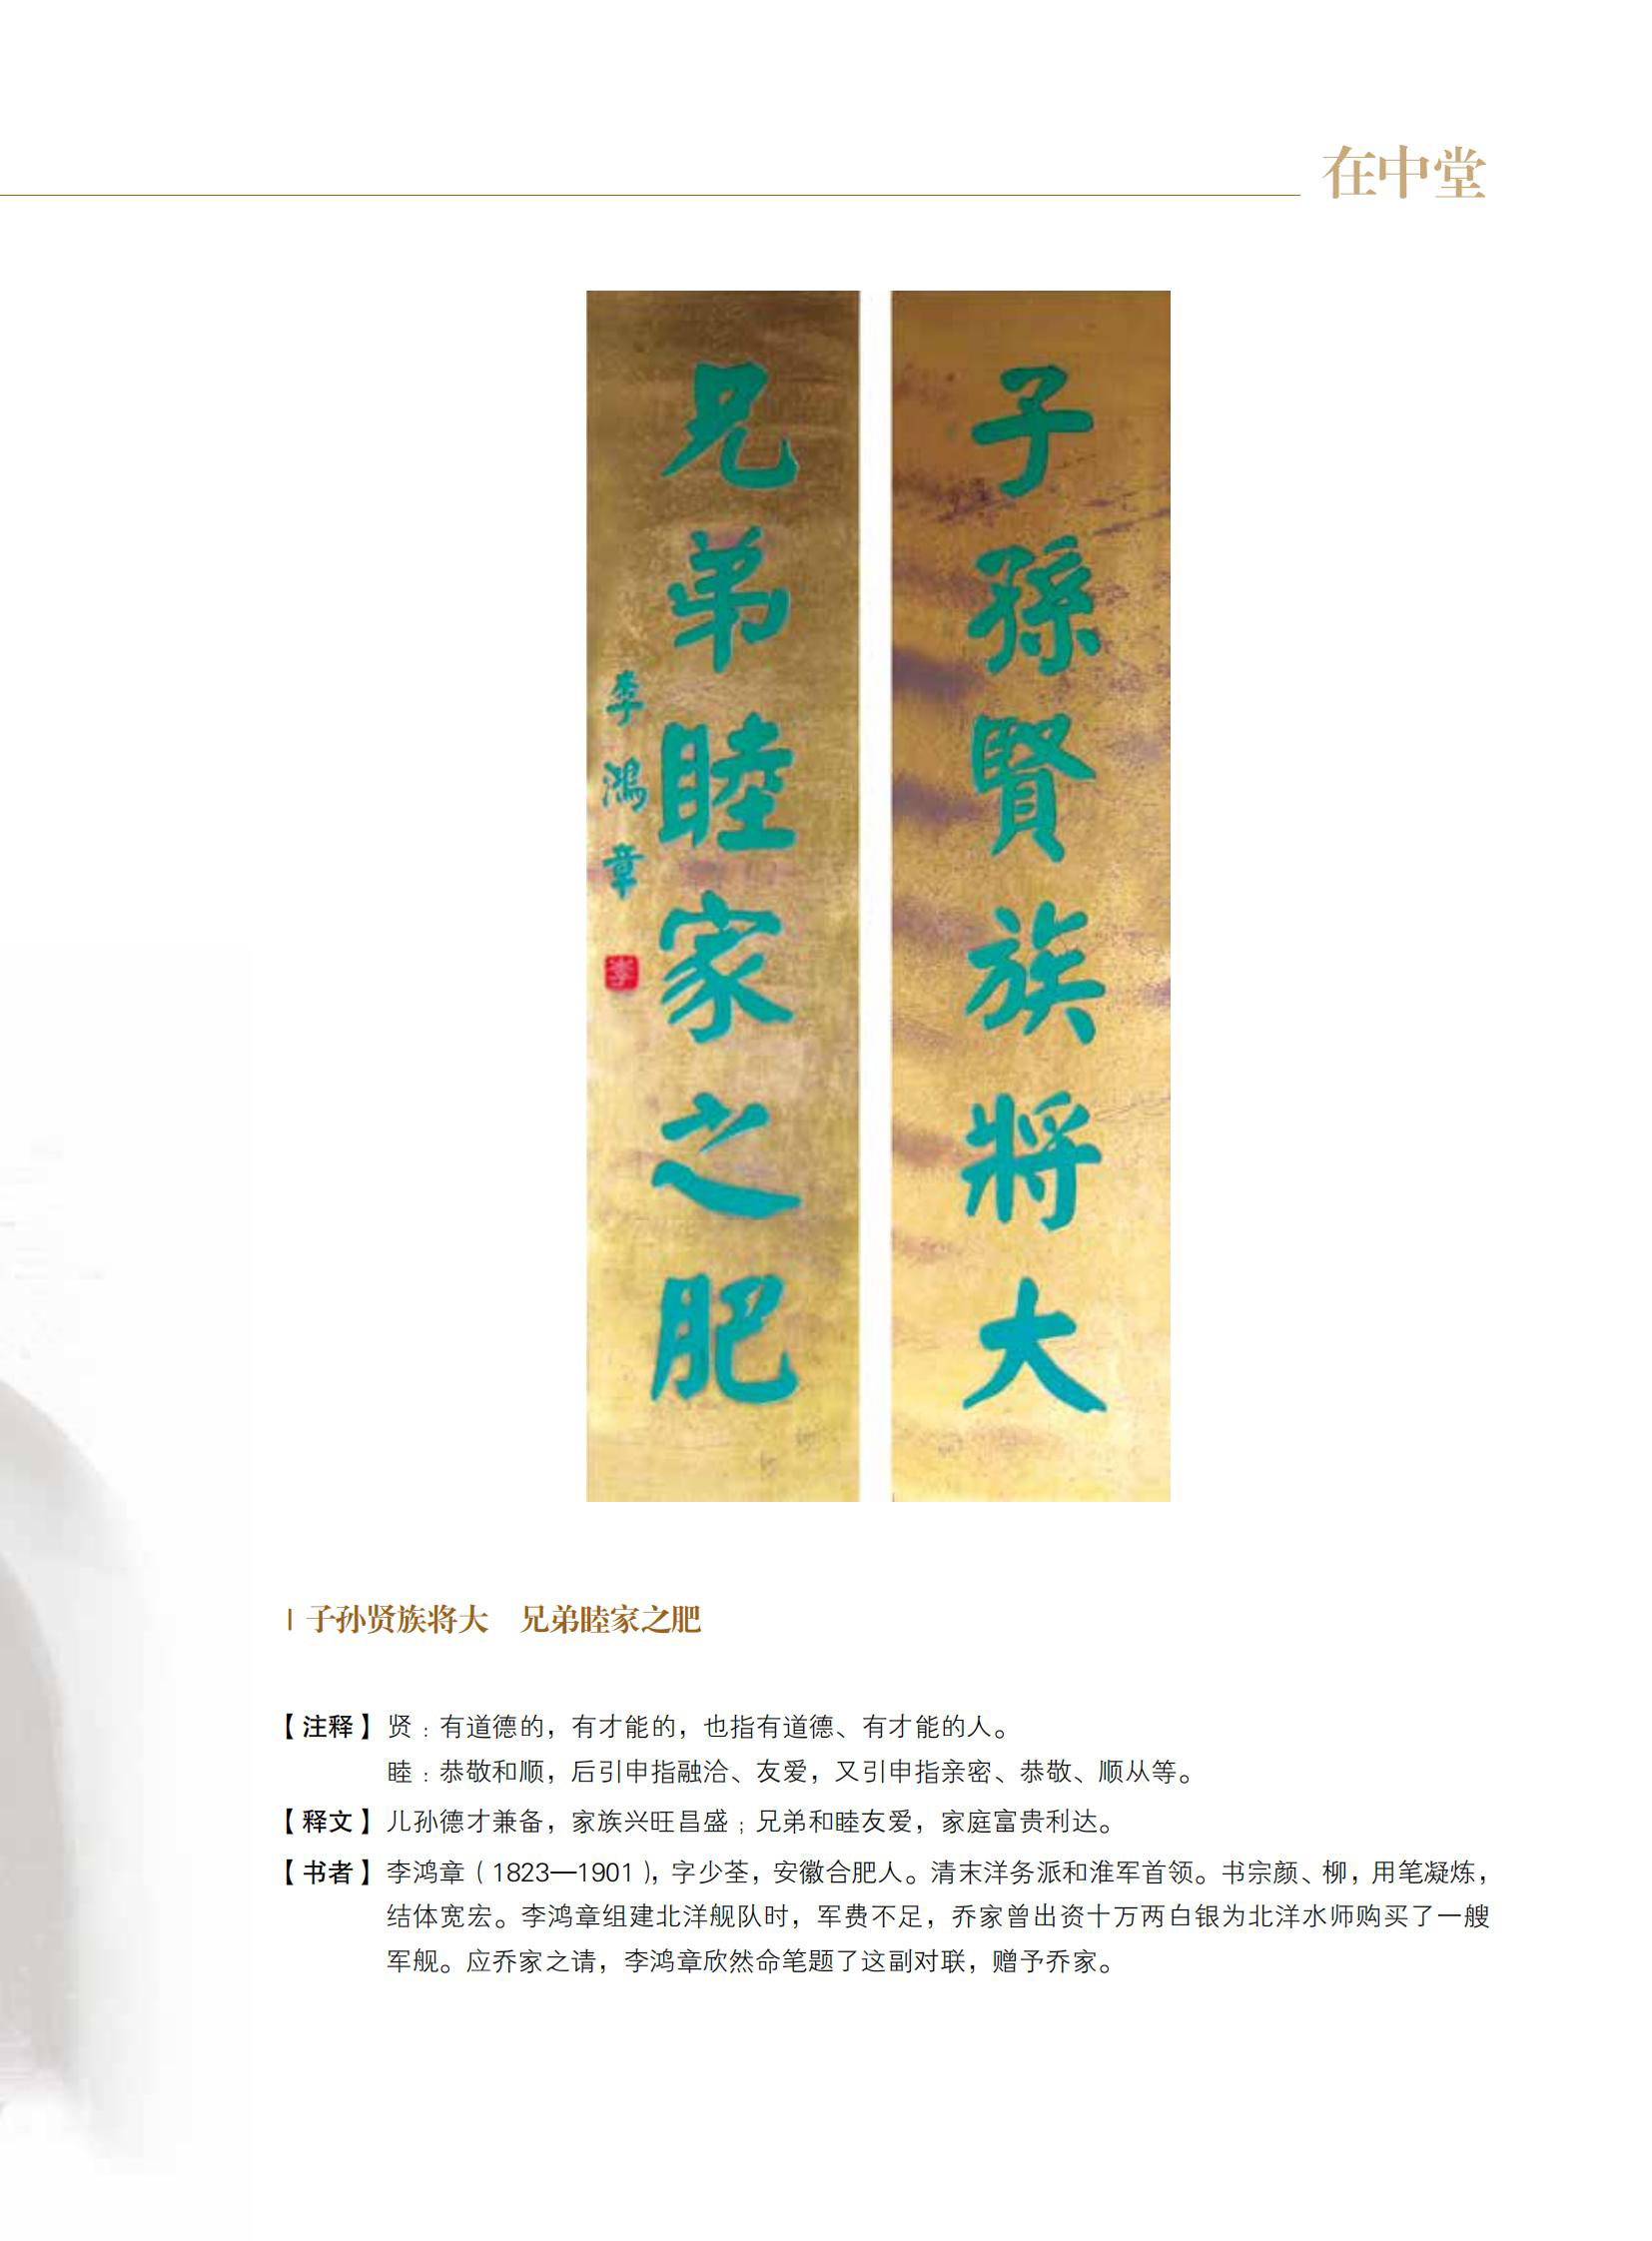 在中堂
子孫賢族將大
兄弟睦家之肥
李鴻章
李
| 子孙贤族将大　兄弟睦家之肥
【注释】贤：有道德的，有才能的，也指有道德、有才能的人。
睦：恭敬和顺，后引申指融洽、友爱，又引申指亲密、恭敬、顺从等。
【释文】儿孙德才兼备，家族兴旺昌盛；兄弟和睦友爱，家庭富贵利达。
【书者】李鸿章（1823—1901），字少荃，安徽合肥人。清末洋务派和淮军首领。书宗颜、柳，用笔凝炼，
结体宽宏。李鸿章组建北洋舰队时，军费不足，乔家曾出资十万两白银为北洋水师购买了一艘
军舰。应乔家之请，李鸿章欣然命笔题了这副对联，赠予乔家。